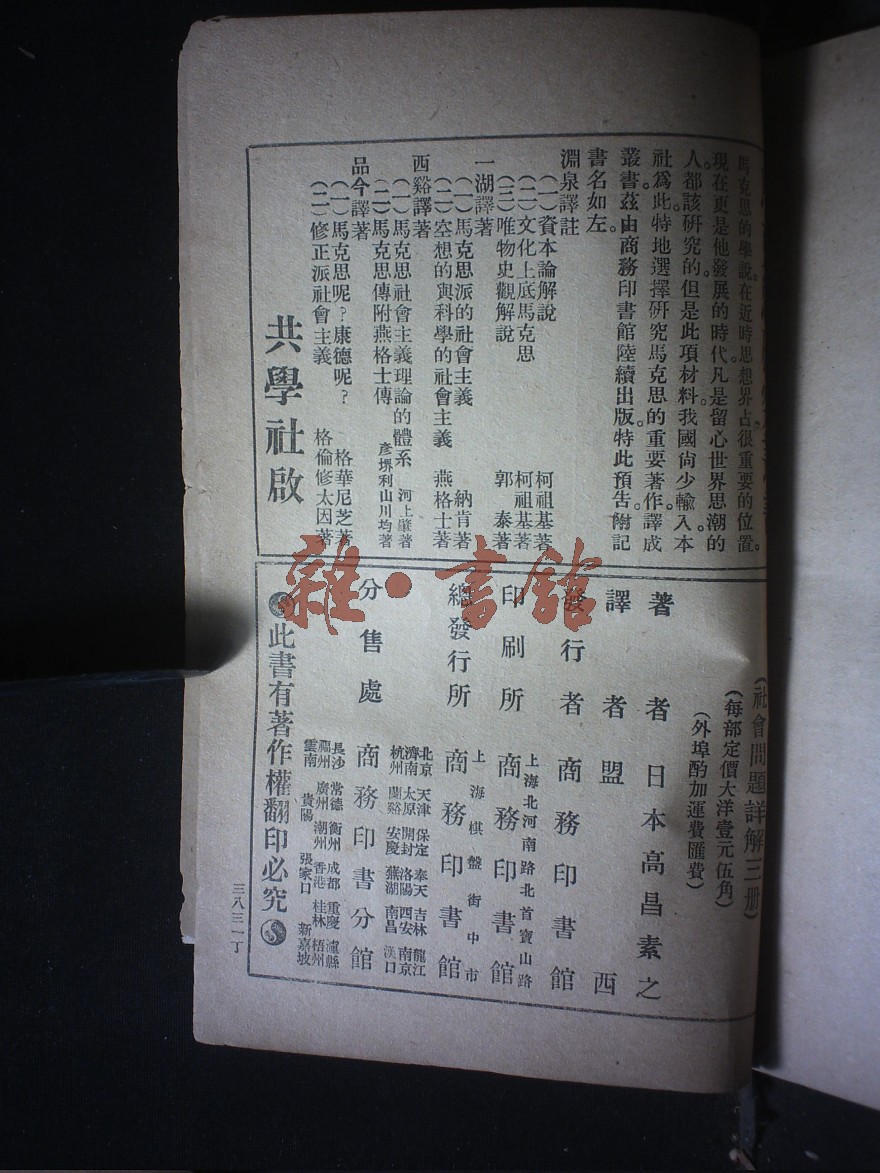 馬克思的學說。在近時思想界占很重要的位置。
現在更是他發展的時代。凡是留心世界思潮的
人。都該研究的。但是此項材料。我國尙少輸入。本
社爲此特地選擇硏究馬克思的重要著作。譯成
叢書。茲由商務印書館陸續出版。特此預告。附記
書名如左。
淵泉譯註
(一)資本論解說 柯祖基著
(二)文化上底馬克思 柯祖基著
(三)唯物史觀解說 郭泰著
一湖譯著
(一)馬克思派的社會主義 納肯著
(二)空想的與科學的社會主義 燕格士著
西谿譯著
(一)馬克思社會主義理論的體系 河上肇著
(二)馬克思傳附燕格士傳 彥堺利山川均著
品今譯著
(一)馬克思呢?康德呢? 格華尼芝著
(二)修正派社會主義 格倫修太因著
共學社啟
(社會問題詳解三册)
(每部定價大洋壹元伍角)
(外埠酌加運費匯費)
著者 日本高昌素之
譯者 盟西
發行者 商務印書館
印刷所 上海北河南路北首寶山路 商務印書館
總發行所 上海棋盤街中市 商務印書館
分售處 商務印書分館
北京 天津 保定 奉天 吉林 龍江
濟南 太原 開封 洛陽 西安 南京
杭州 蘭谿 安慶 蕪湖 南昌 漢口
長沙 常德 衡州 成都 重慶 瀘縣
福州 廣州 潮州 香港 桂林 梧州
雲南 貴陽 張家口 新嘉坡
此書有著作權翻印必究
三八三一丁
雜·書館